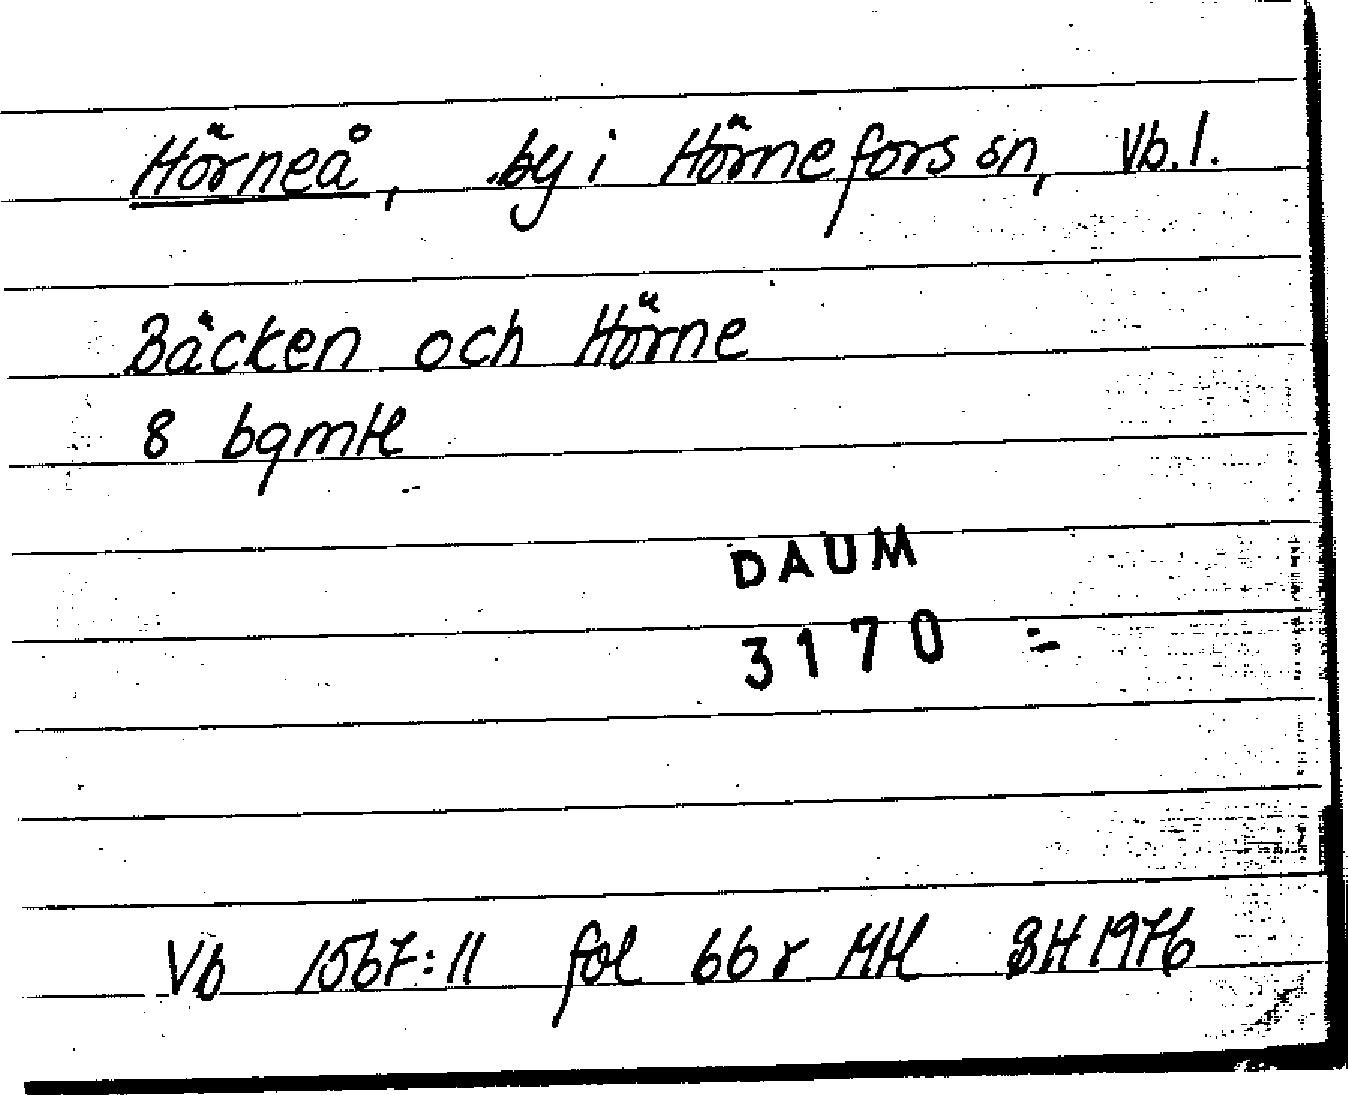 Hörneå, by i Hörnefors sn, Vb. l.
Bäcken och Hörne
8 bqmtl
DAUM
3170
Vb 1567:11 fol 66 r MH BH 1976